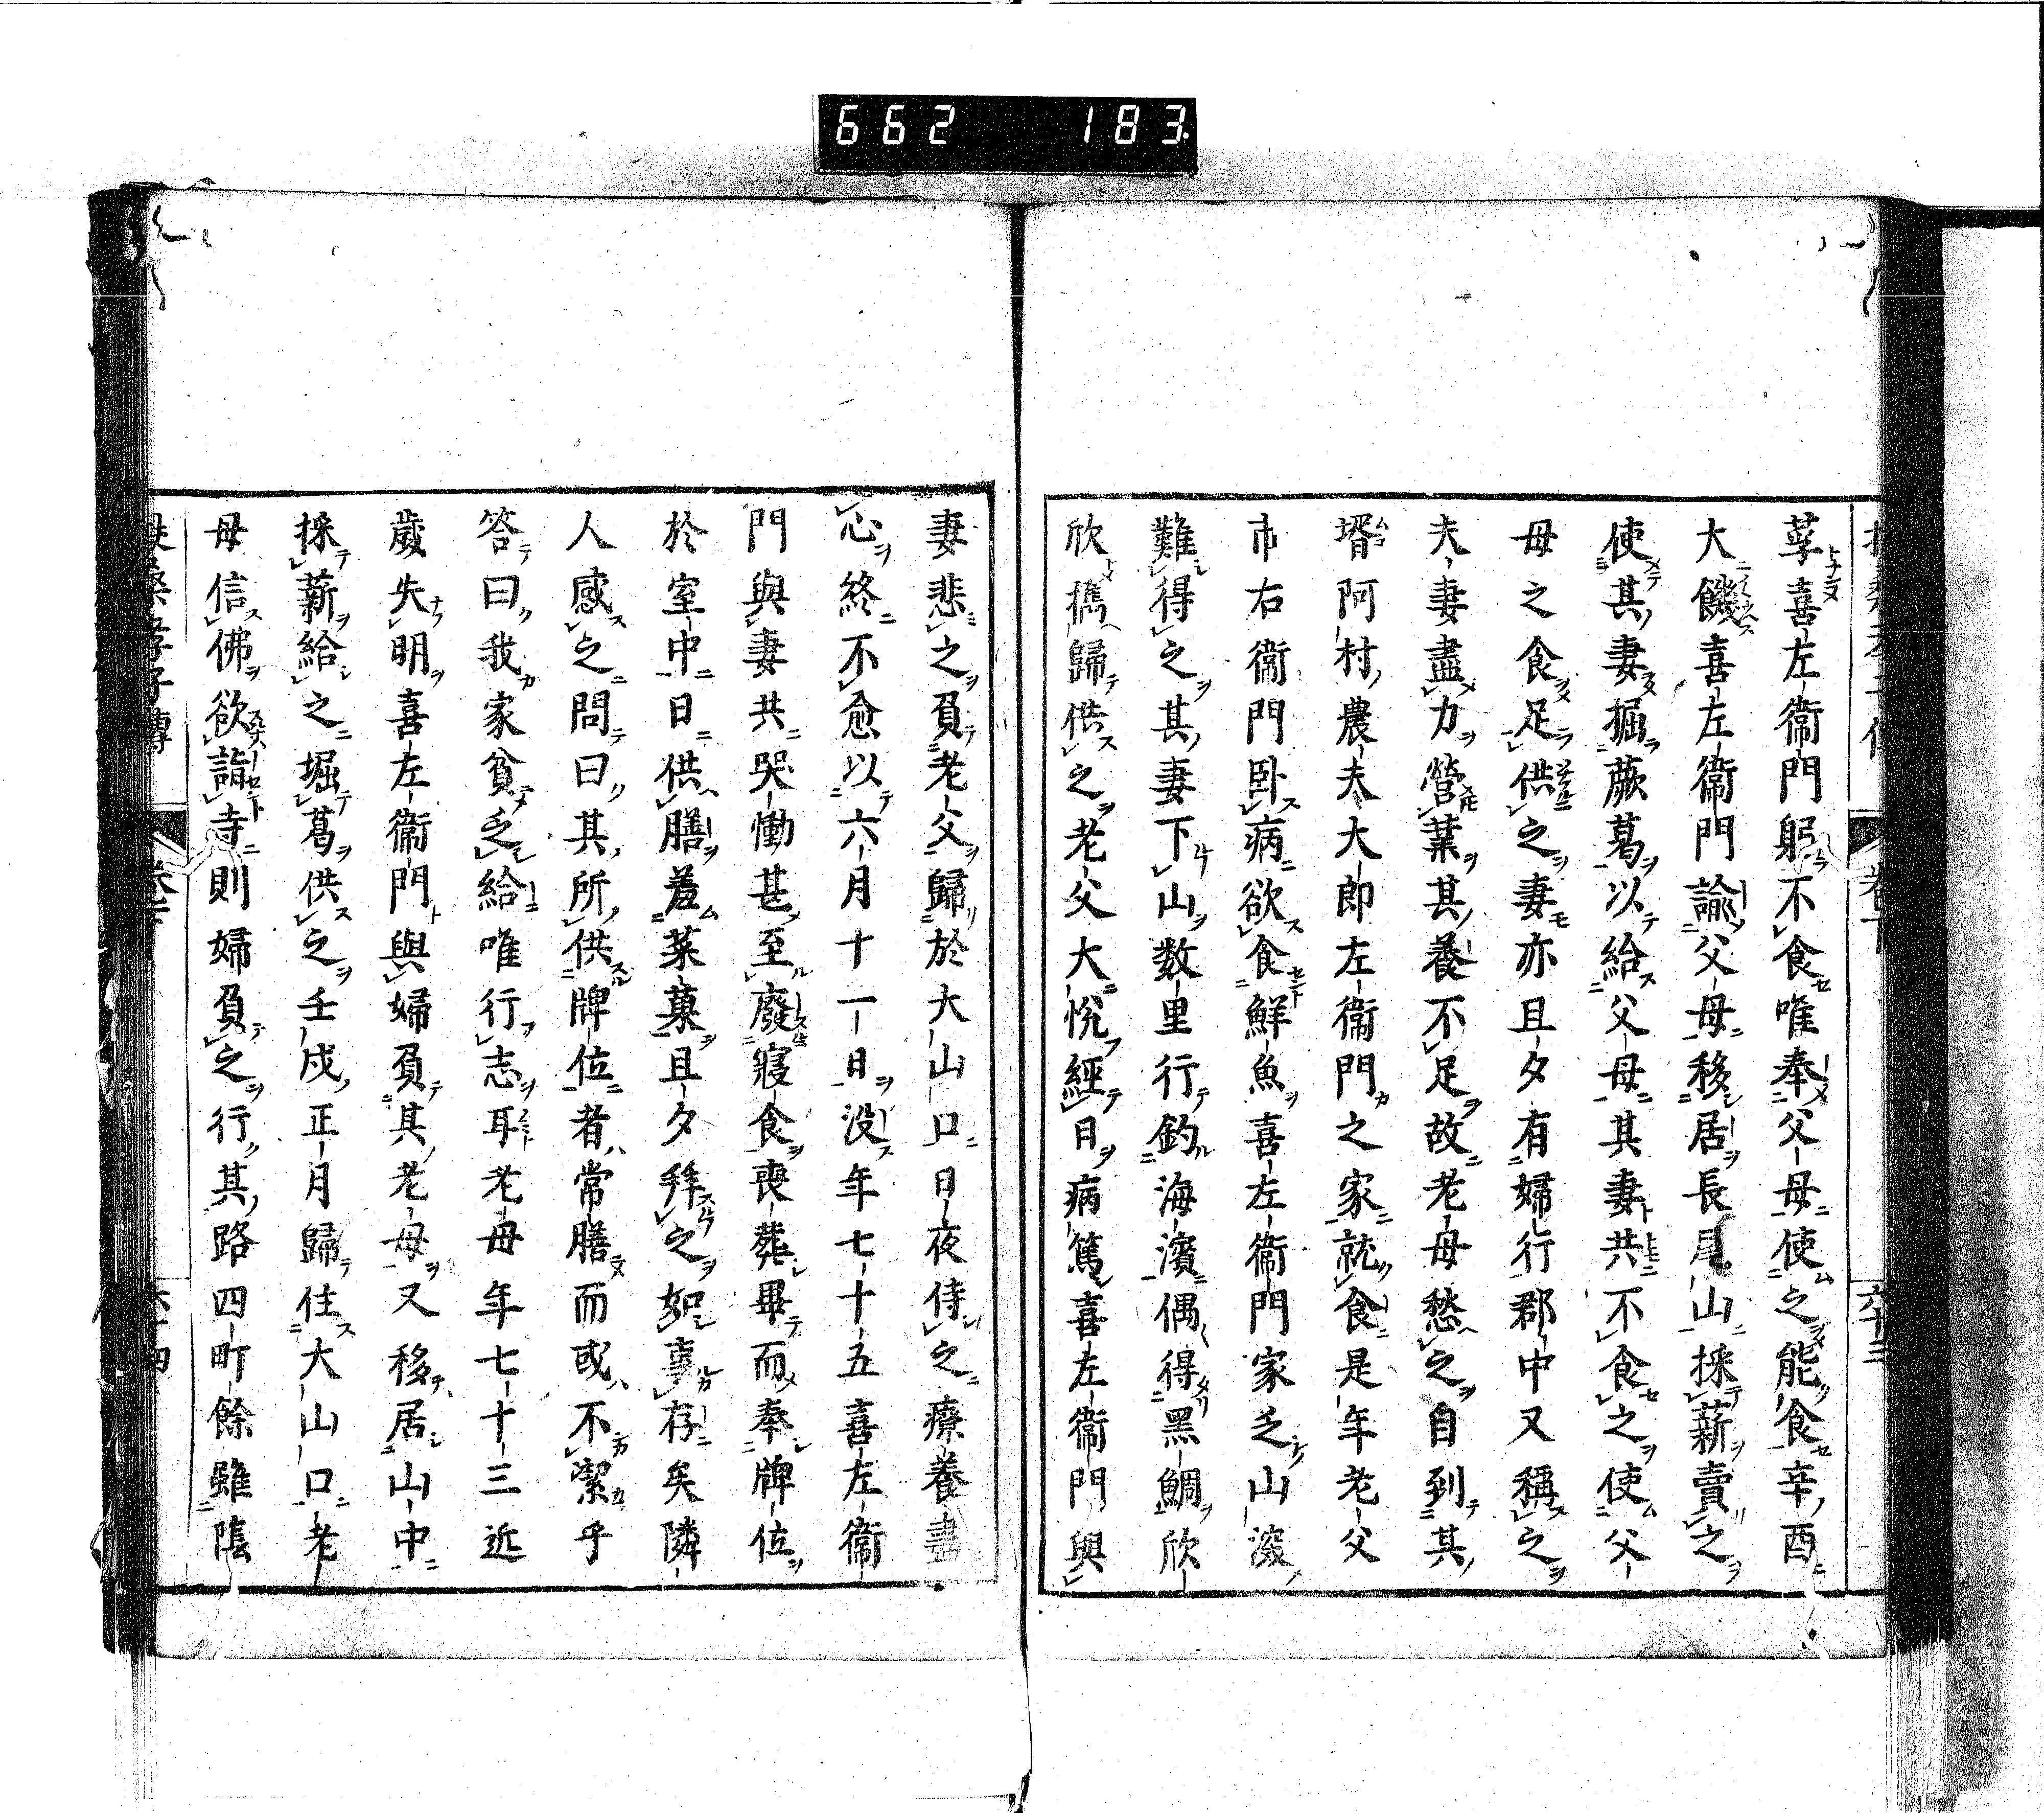 662 183
莩喜左衞門躬不食唯奉父母使之能食辛酉
大饑喜左衞門諭父母移居長尾山採薪賣之
使其妻掘蕨葛以給父母其妻共不食之使父
母之食足供之妻亦且夕有婦行郡中又稱之
夫妻盡力營業其養不足故老母愁之自到其
壻阿村農夫大郎左衞門之家就食是年老父
市右衞門卧病欲食鮮魚喜左衞門家乏山深
難得之其妻下山数里行釣海濱偶得黑鯛欣
欣携歸供之老父大悅經日病篤喜左衞門與
妻悲之負老父歸於大山口日夜侍之療養盡
心終不愈以六月十一日没年七十五喜左衞
門與妻共哭慟甚至廢寢食喪葬畢而奉牌位
於室中日供膳羞菜菓且夕拜之如事存矣隣
人感之問曰其所供牌位者常膳而或不潔乎
答曰我家貧乏給唯行志耳老母年七十三近
歲失明喜左衞門與婦負其老母又移居山中
採薪給之堀葛供之壬戌正月歸住大山口老
母信佛欲詣寺則婦負之行其路四町餘雖陰